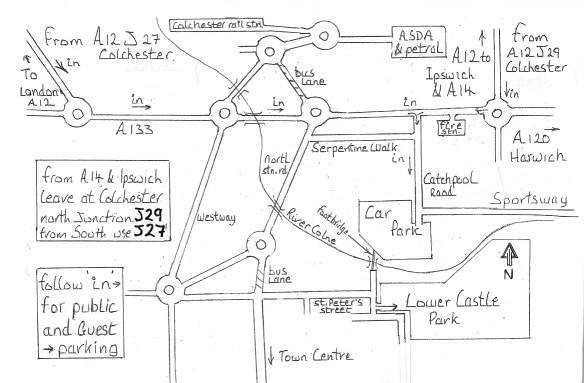 Colchester rail stn.
From A12 J27
Colchester.
in
To
London
A12
in
A133
in
bus
Lane
ASDA
& petrol
A12 to
Ipswich
& A14
From
A12 J29
Colchester
in
in
fire
stn.
A120
Harwich
Serpentine Walk
in
Catchpool
Road
Sportsway
North
stn. rd
Westway
from A14 & Ipswich
Leave at Colchester
north Junction J29
from South use J27
Footbridge
Car
Park
River Colne
N
bus
Lane
follow 'in'
for public
and Guest
parking
st. Peter's
street
Lower Castle
Park
Town Centre